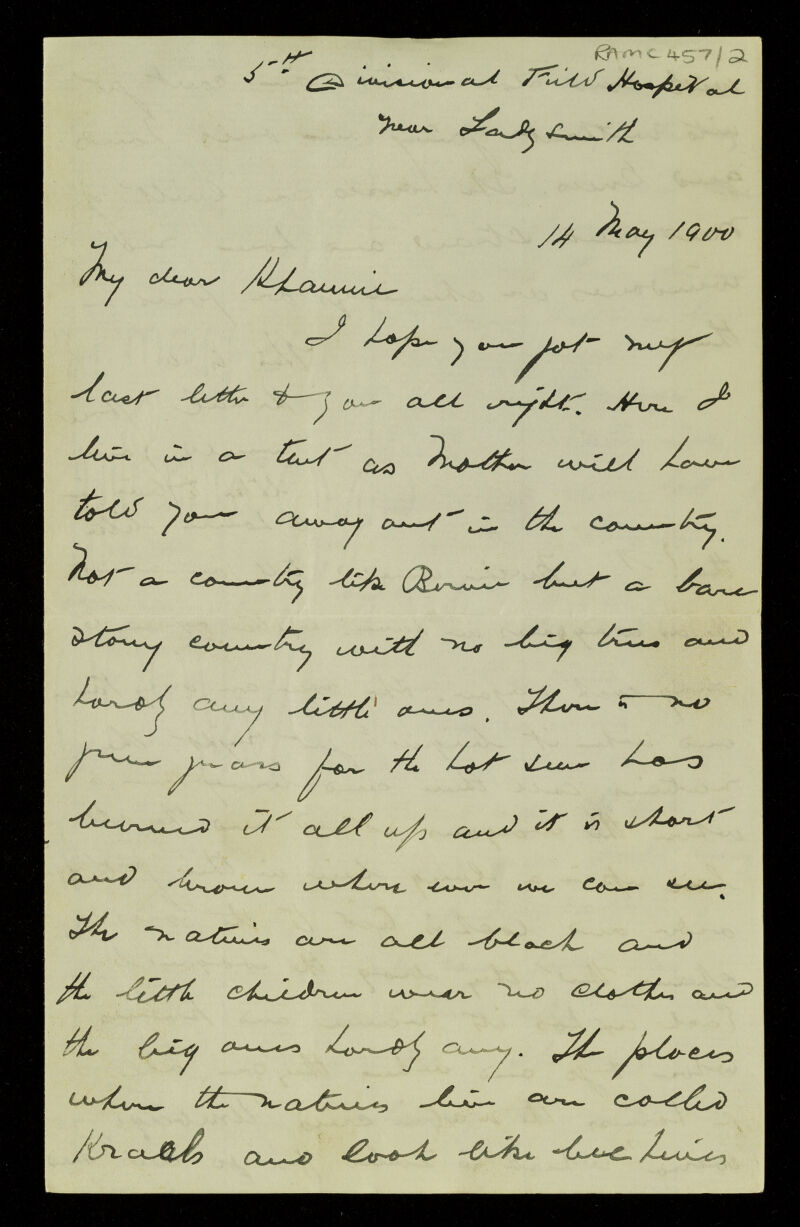 RAMC 457/2
5th Divisional Field Hospital
near Ladysmith
14 May 1900
My dear
I hope you got my
last letter to you all right. Here I
live in a tent as Mother will have
told you away out in the country.
Not a country like but a bare
stony country with no big trees and
hardly any little ones. There is no
green grass for the hot sun has
burned it all up and it is short
and brown where ever we can see.
The natives are all black and
the little children wear no clothes and
the big ones hardly any. The places
where the natives live are called
Kraals and look like bee hives